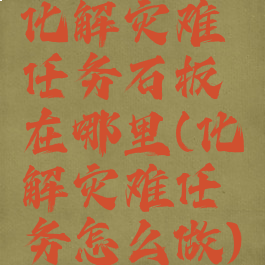 化解灾难
任务石板
在哪里(化
解灾难任
务怎么做)